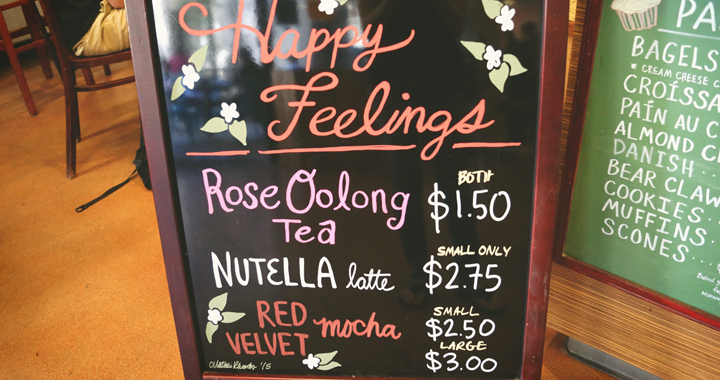 Happy
Feelings
Rose Oolong
Tea
BOTH
$1.50
NUTELLA latte
SMALL ONLY
$2.75
RED
VELVET
mocha
SMALL
$2.50
LARGE
$3.00
1/5
PA
BAGELS
* CREAM CHEESE
CROISSA
PAÍN AU C
ALMOND C
DANISH...
BEAR CLAW
COOKIES..
MUFFINS..
SCONES...